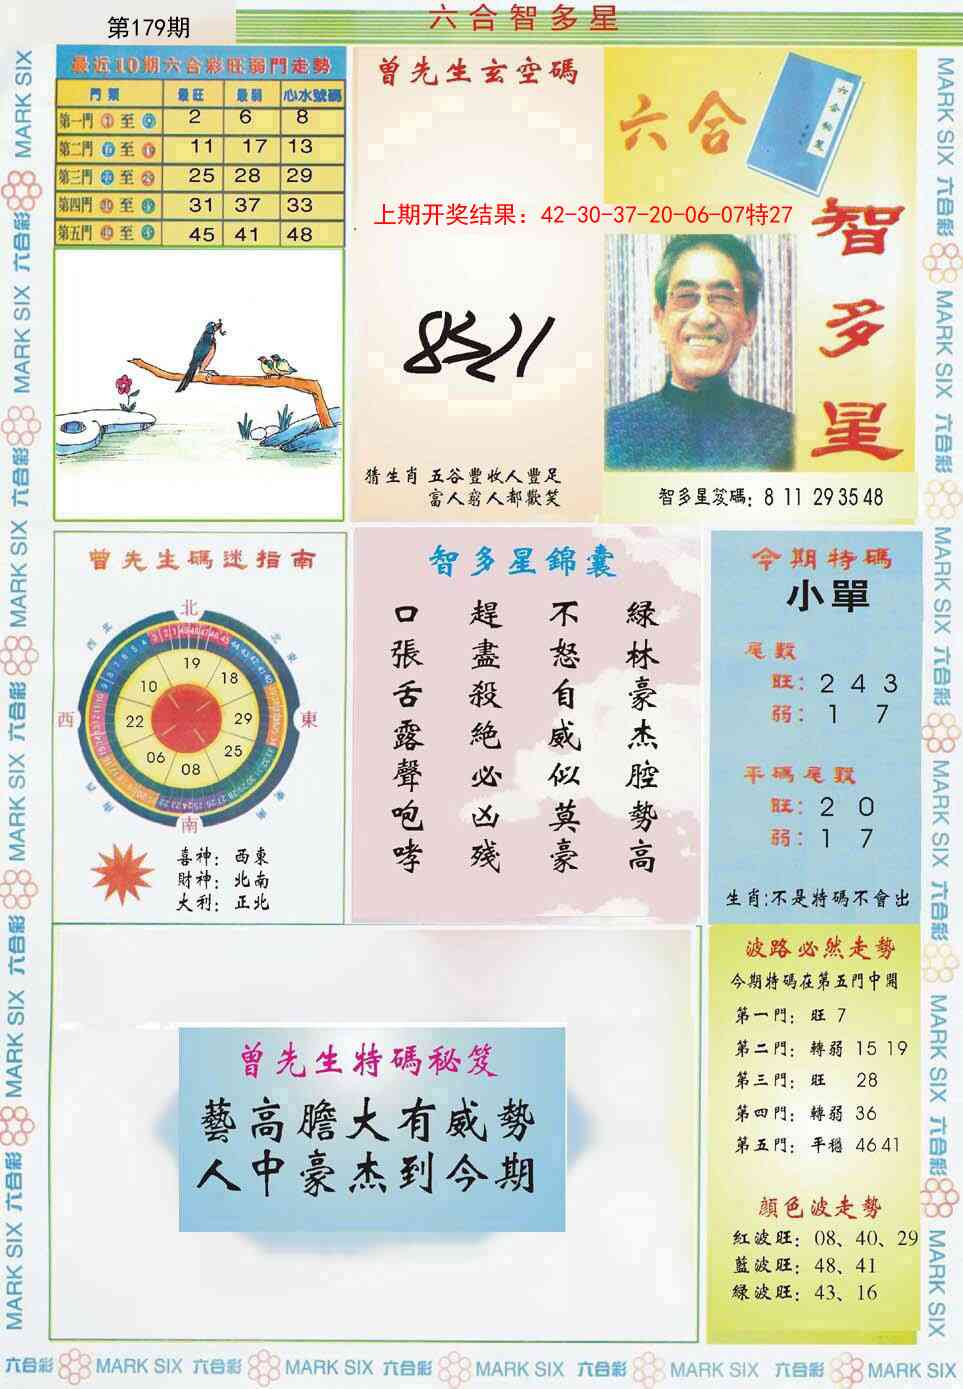 第179期
六合智多星
最近10期六合彩旺弱門走勢
門類 最旺 最弱 心水號碼
第一門 至 2 6 8
第二門 至 11 17 13
第三門 至 25 28 29
第四門 至 31 37 33
第五門 至 45 41 48
曾先生玄空碼
六合
智多星
上期开奖结果：42-30-37-20-06-07特27
猜生肖 五谷豐收人豐足
富人窮人都歡笑
智多星笈碼：8 11 29 35 48
曾先生碼迷指南
北
東
南
西
19
18
29
25
08
06
22
10
喜神：西東
財神：北南
大利：正北
智多星錦囊
綠林豪杰腔勢高
不怒自威似莫豪
趕盡殺絕必凶殘
口張舌露聲咆哮
今期特碼
小單
尾數
旺：2 4 3
弱：1 7
平碼尾數
旺：2 0
弱：1 7
生肖:不是特碼不會出
曾先生特碼秘笈
藝高膽大有威勢
人中豪杰到今期
波路必然走勢
今期特碼在第五門中開
第一門：旺 7
第二門：轉弱 15 19
第三門：旺 28
第四門：轉弱 36
第五門：平穩 46 41
顏色波走勢
紅波旺：08、40、29
藍波旺：48、41
綠波旺：43、16
六合彩 MARK SIX 六合彩 MARK SIX 六合彩 MARK SIX 六合彩 MARK SIX